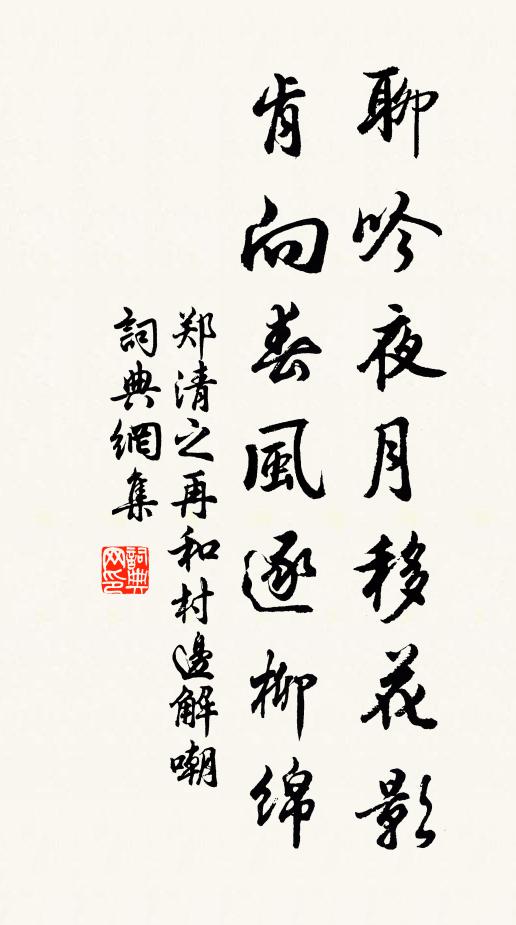 聊吟夜月移花影
肯向春風逐柳綿
郑清之再和村邊解嘲
詞典網集
詞典网印